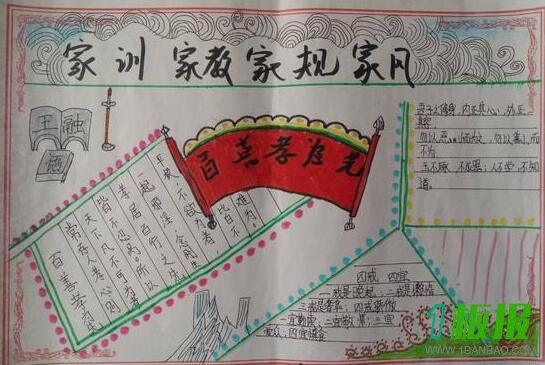 家训 家教家规家风
王融
语
百善孝为先
百善孝为先
常存人孝心则
天下凡不可为者
皆不忍为所以
孝居百行之先
一起邪淫念则生
平极不欲为者
比目不难为
君子之修身，内正其心，外正其容
勿以恶小而为之，勿以善小而不为
玉不琢，不成器；人不学，不知道。
四戒 四宜
一戒是晚起，二戒是懒惰
三戒是奢华，四戒骄傲
一宜勤读，二宜敬师，三宜爱众，四宜慎食
1板报
WWW.1BANBAO.COM